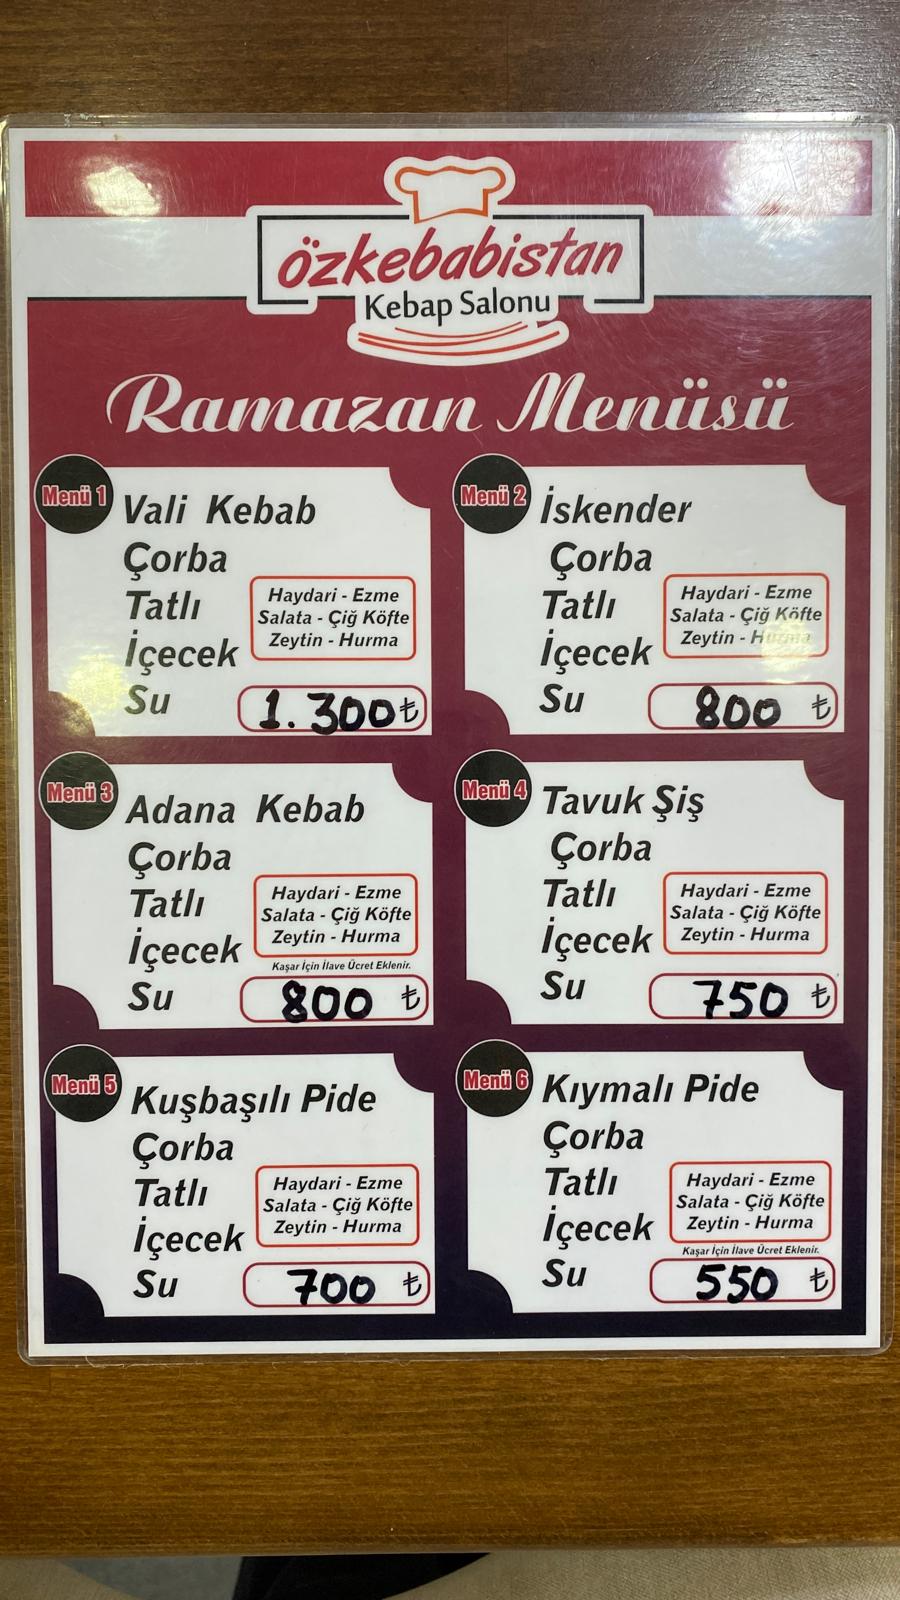 özkebabistan
Kebap Salonu
Ramazan Menüsü
Menü 1
Vali Kebab
Çorba
Tatlı
İçecek
Su
Haydari - Ezme
Salata - Çiğ Köfte
Zeytin - Hurma
1.300 ₺
Menü 2
İskender
Çorba
Tatlı
İçecek
Su
Haydari - Ezme
Salata - Çiğ Köfte
Zeytin - Hurma
800 ₺
Menü 3
Adana Kebab
Çorba
Tatlı
İçecek
Su
Haydari - Ezme
Salata - Çiğ Köfte
Zeytin - Hurma
Kaşar İçin İlave Ücret Eklenir.
800 ₺
Menü 4
Tavuk Şiş
Çorba
Tatlı
İçecek
Su
Haydari - Ezme
Salata - Çiğ Köfte
Zeytin - Hurma
750 ₺
Menü 5
Kuşbaşılı Pide
Çorba
Tatlı
İçecek
Su
Haydari - Ezme
Salata - Çiğ Köfte
Zeytin - Hurma
700 ₺
Menü 6
Kıymalı Pide
Çorba
Tatlı
İçecek
Su
Haydari - Ezme
Salata - Çiğ Köfte
Zeytin - Hurma
Kaşar İçin İlave Ücret Eklenir.
550 ₺